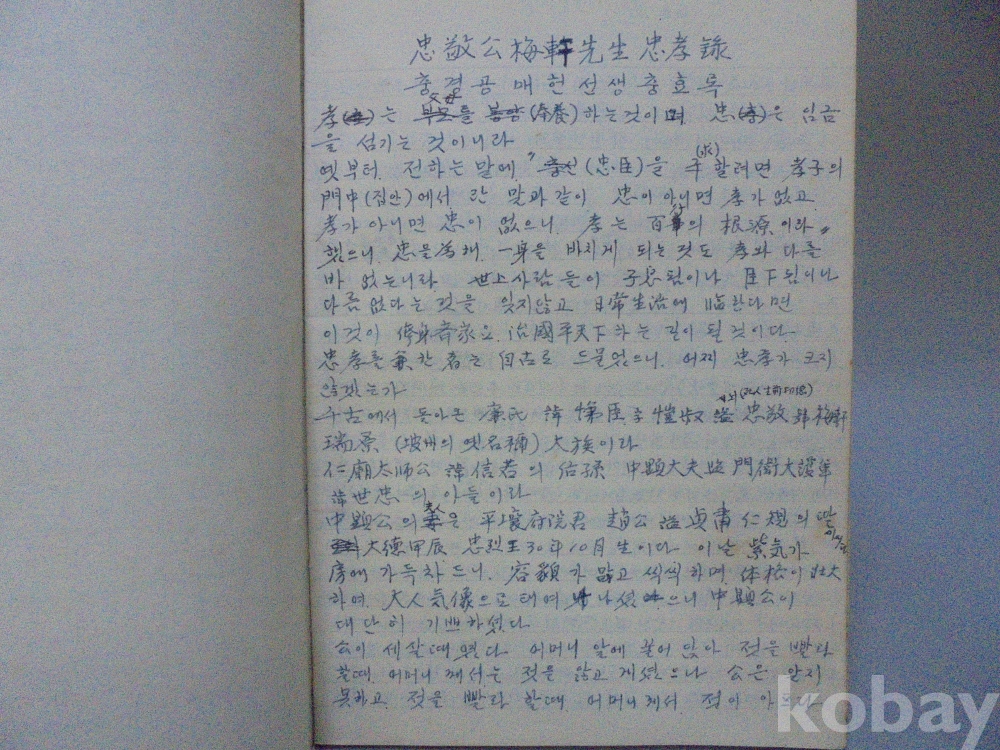 忠敬公梅軒先生忠孝錄
충경공매헌선생충효록
孝는 父母를 봉양(奉養)하는것이며 忠은 임금
을 섬기는 것이니라
옛부터 전하는 말에 "(忠臣)을 구(求)할려면 孝子의
門中(집안)에서 란 말과같이 忠이아니면 孝가 없고
孝가 아니면 忠이 없으니 孝는 百行의 根源이라"
했으니 忠을為해 一身을 바치게 되는것도 孝와 다를
바 없느니라 世上사람들이 子息됨이나 臣下됨이나
다름없다는 것을 잊지않고 日常生活에 臨한다면
이것이 修身齊家요 治國平天下하는 길이 될것이다
忠孝를 兼한 者는 自古로 드물었으니 어찌 忠孝가 크지
않겠는가
돌아온 廉氏 諱悌臣字愷叔 諡忠敬 號梅軒
시뇌(死人生前印信)
瑞原 (坡州의 옛名稱) 大族이라
仁廟太師公 諱信若의 后孫 中顯大夫 監門衛大護軍
諱世忠의 아들이라
中顯公의 夫人은 平壤府院君 趙公 諡貞肅 仁規의 딸
이시고
大德甲辰 忠烈王30年10月生이다 이날 紫気가
房에 가득차드니 容貌가 맑고 씩씩하며 体格이 壯大
하여 大人気像으로 태여나셨으니 中顯公이
대단히 기쁘하셨다
公이 세살때였다 어머니 앞에 꿇어 앉아 젖을 빨라
할때 어머니께서는 젖을 않고 계셨으나 公은 앉지
못하고 젖을 빨라 할때 어머니께서 젖이 아프다
kobay